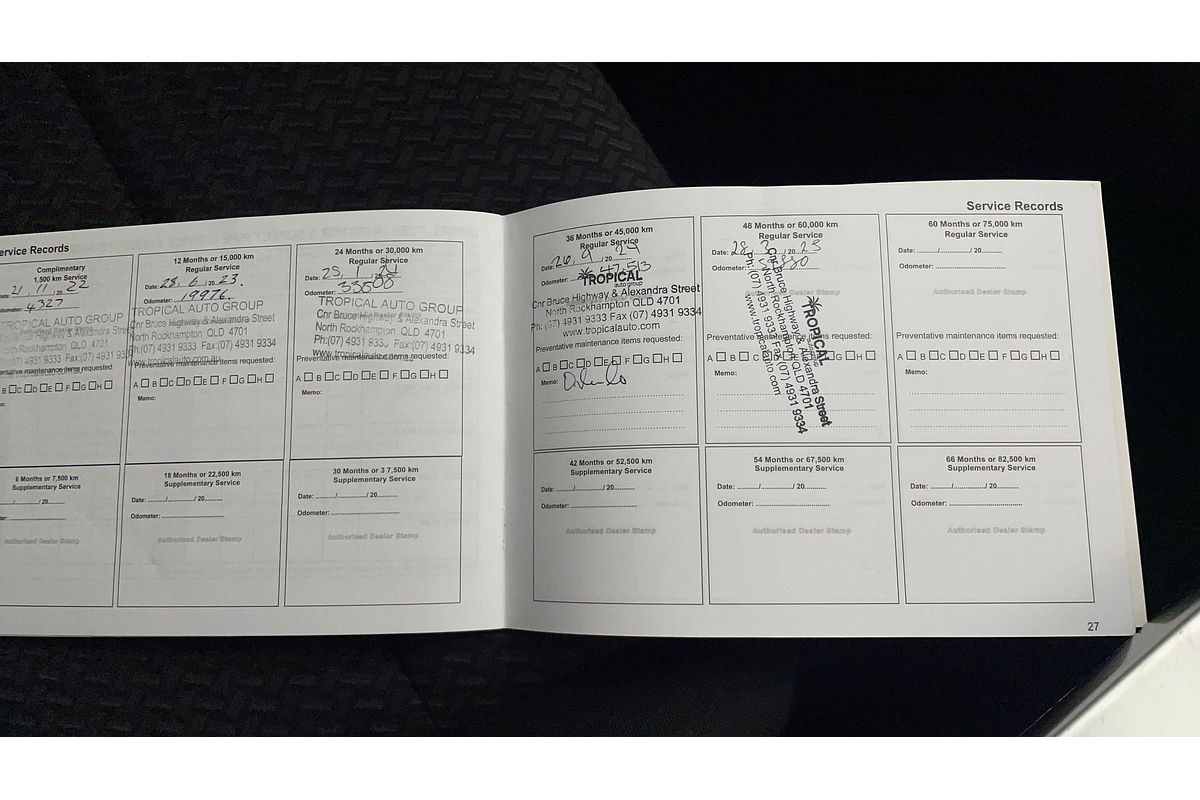 Service Records
Complimentary
1,500 km Service
Date: 21, 11, 20 22
4327
TROPICAL AUTO GROUP
Cnr Bruce Highway & Alexandra Street
North Rockhampton QLD 4701
Ph:(07) 4931 9333 Fax:(07) 4931 9334
Preventative maintenance items requested:
B C D E F G H
6 Months or 7,500 km
Supplementary Service
/ 20
Authorised Dealer Stamp
12 Months or 15,000 km
Regular Service
Date: 28, 6, 20 23.
Odometer: 19976.
TROPICAL AUTO GROUP
Cnr Bruce Highway & Alexandra Street
North Rockhampton QLD 4701
Ph:(07) 4931 9333 Fax:(07) 4931 9334
www.tropicalauto.com.au
Preventative maintenance items requested:
A B C D E F G H
Memo:
18 Months or 22,500 km
Supplementary Service
Date: / / 20
Odometer:
Authorised Dealer Stamp
24 Months or 30,000 km
Regular Service
Date: 25, 1, 24
Odometer: 33500
TROPICAL AUTO GROUP
Cnr Bruce Highway & Alexandra Street
North Rockhampton QLD 4701
Ph:(07) 4931 9333 Fax:(07) 4931 9334
Preventative maintenance items requested:
A B C D E F G H
Memo:
30 Months or 37,500 km
Supplementary Service
Date: / / 20
Odometer:
Authorised Dealer Stamp
Service Records
36 Months or 45,000 km
Regular Service
Date: 26, 9 / 20 24
Odometer: 47,513
TROPICAL
auto group
Cnr Bruce Highway & Alexandra Street
North Rockhampton QLD 4701
Ph: (07) 4931 9333 Fax (07) 4931 9334
www.tropicalauto.com
Preventative maintenance items requested:
A B C D E F G H
Memo:
42 Months or 52,500 km
Supplementary Service
Date: / / 20
Odometer:
Authorised Dealer Stamp
48 Months or 60,000 km
Regular Service
Date: 28, 2 / 20 25
Odometer:
TROPICAL
Cnr Bruce Highway & Alexandra Street
North Rockhampton QLD 4701
Ph: (07) 4931 9333 Fax (07) 4931 9334
www.tropicalauto.com
Preventative maintenance items requested:
A B G H
Memo:
54 Months or 67,500 km
Supplementary Service
Date: / / 20
Odometer:
Authorised Dealer Stamp
60 Months or 75,000 km
Regular Service
Date: / / 20
Odometer:
Authorised Dealer Stamp
Preventative maintenance items requested:
A B C D E F G H
Memo:
66 Months or 82,500 km
Supplementary Service
Date: / / 20
Odometer:
Authorised Dealer Stamp
27